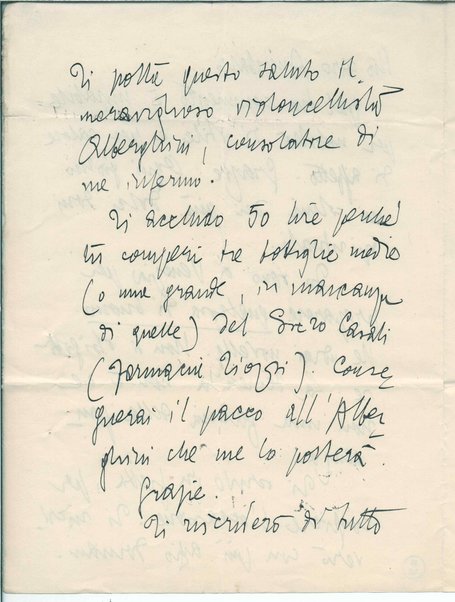 Ti porta questo saluto il
meraviglioso violoncellista
Alberghini, consolatore di
me infermo.
Ti accludo 50 lire perché
tu comperi tre bottiglie medie
(o una grande, in mancanza
di quelle) del Siero Casali
(Farmacia Zioggi). Conse
gnerai il pacco all'Alber
ghini che me lo porterà.
Grazie.
Ti riscriverò di tutto